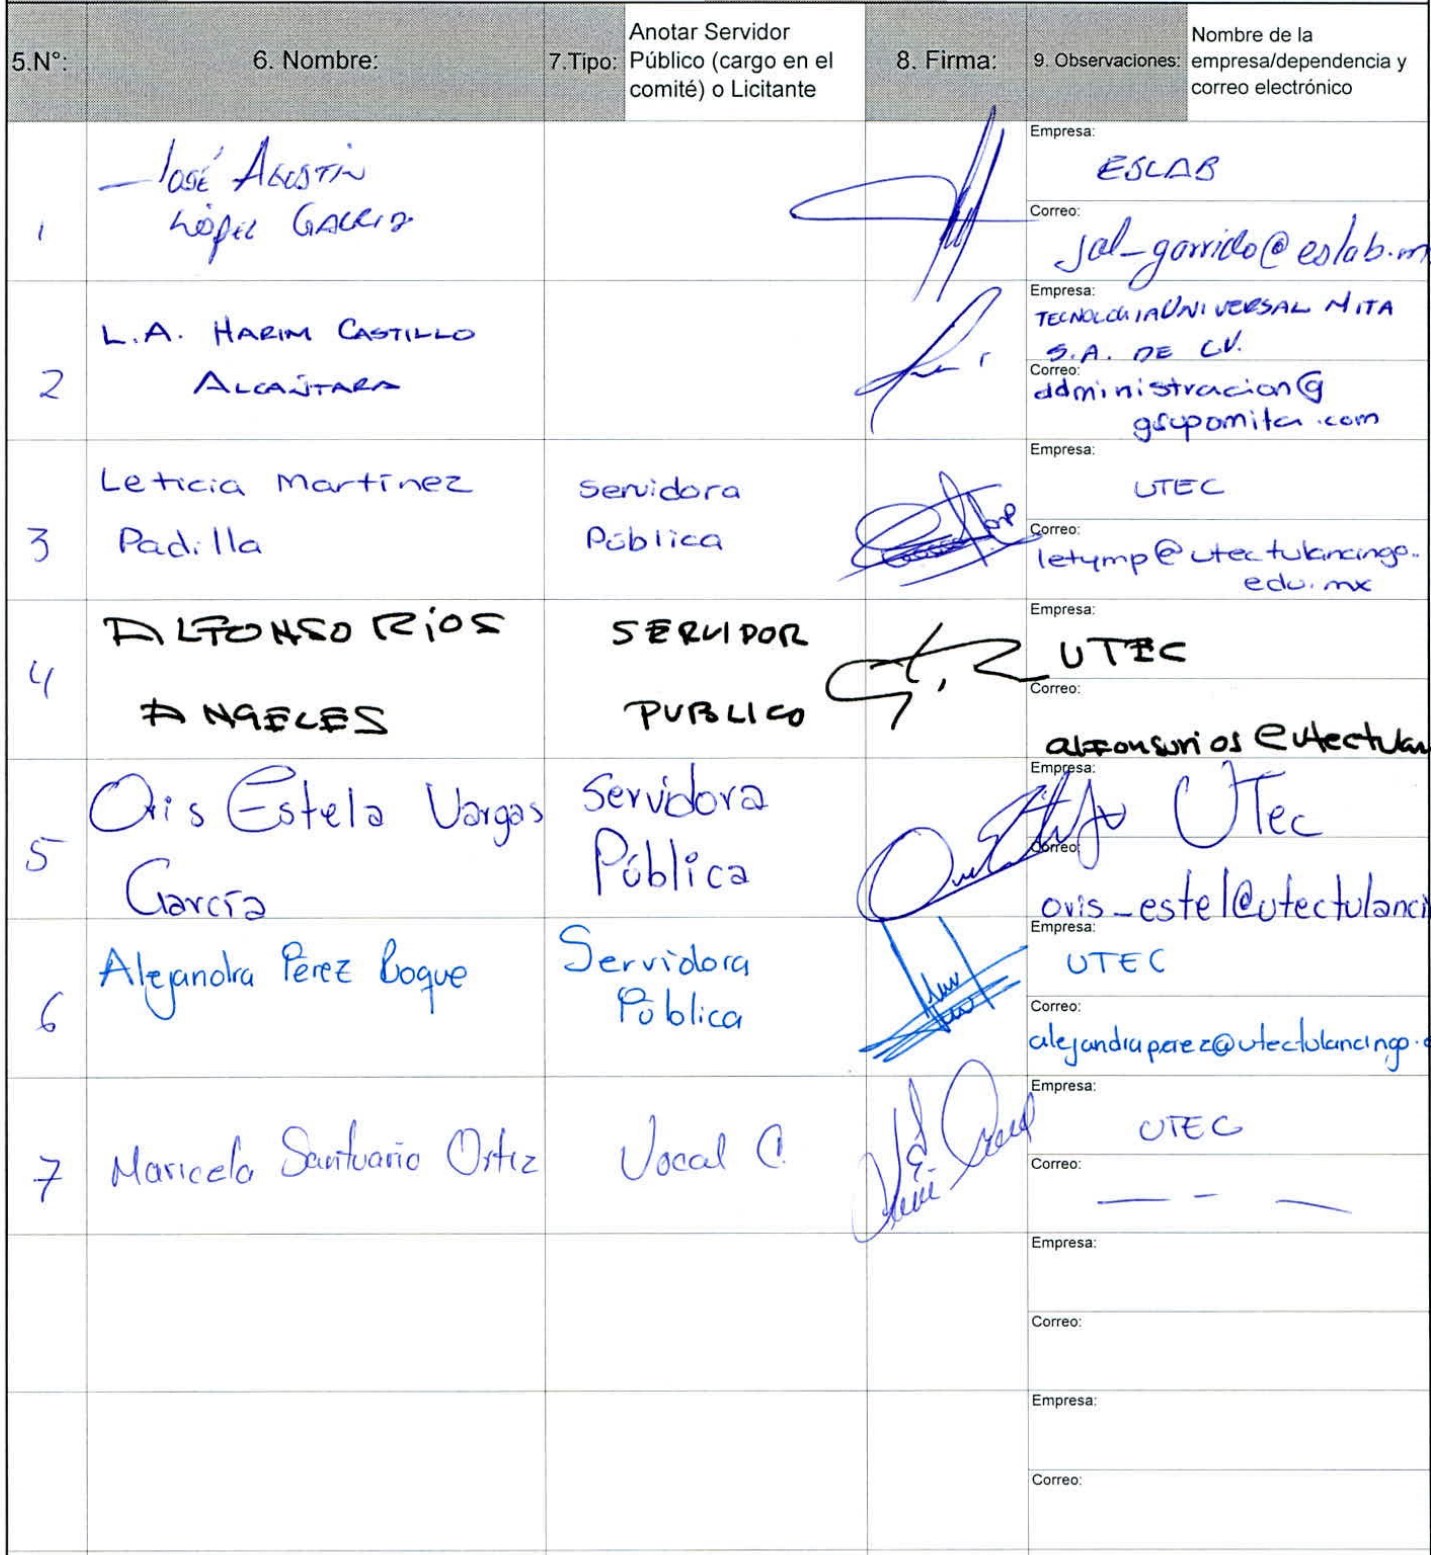 5.N°:
6. Nombre:
7.Tipo:
Anotar Servidor
Público (cargo en el
comité) o Licitante
8. Firma:
9. Observaciones:
Nombre de la
empresa/dependencia y
correo electrónico
1
José Agustín
López
Empresa:
ESLAB
Correo:
jal-garrido@eslab.m
2
L.A. HARIM CASTILLO
ALCÁNTARA
Empresa:
TECNOLOGIA UNIVERSAL MITA
S.A. DE C.V.
Correo:
administracion@
grupomita.com
3
Leticia Martínez
Padilla
Servidora
Pública
Empresa:
UTEC
Correo:
letymp@utectulancingo.
edu.mx
4
ALFONSO RÍOS
ANGELES
SERVIDOR
PUBLICO
Empresa:
UTEC
Correo:
alfonsorios@utectulan
5
Oris Estela Vargas
García
Servidora
Pública
Empresa:
UTec
Correo:
oris_estel@utectulanci
6
Alejandra Pérez Boque
Servidora
Pública
Empresa:
UTEC
Correo:
alejandraperez@utectulancingo.e
7
Maricela Santuario Ortiz
Vocal C.
Empresa:
UTEC
Correo:
— - —
Empresa:
Correo:
Empresa:
Correo: